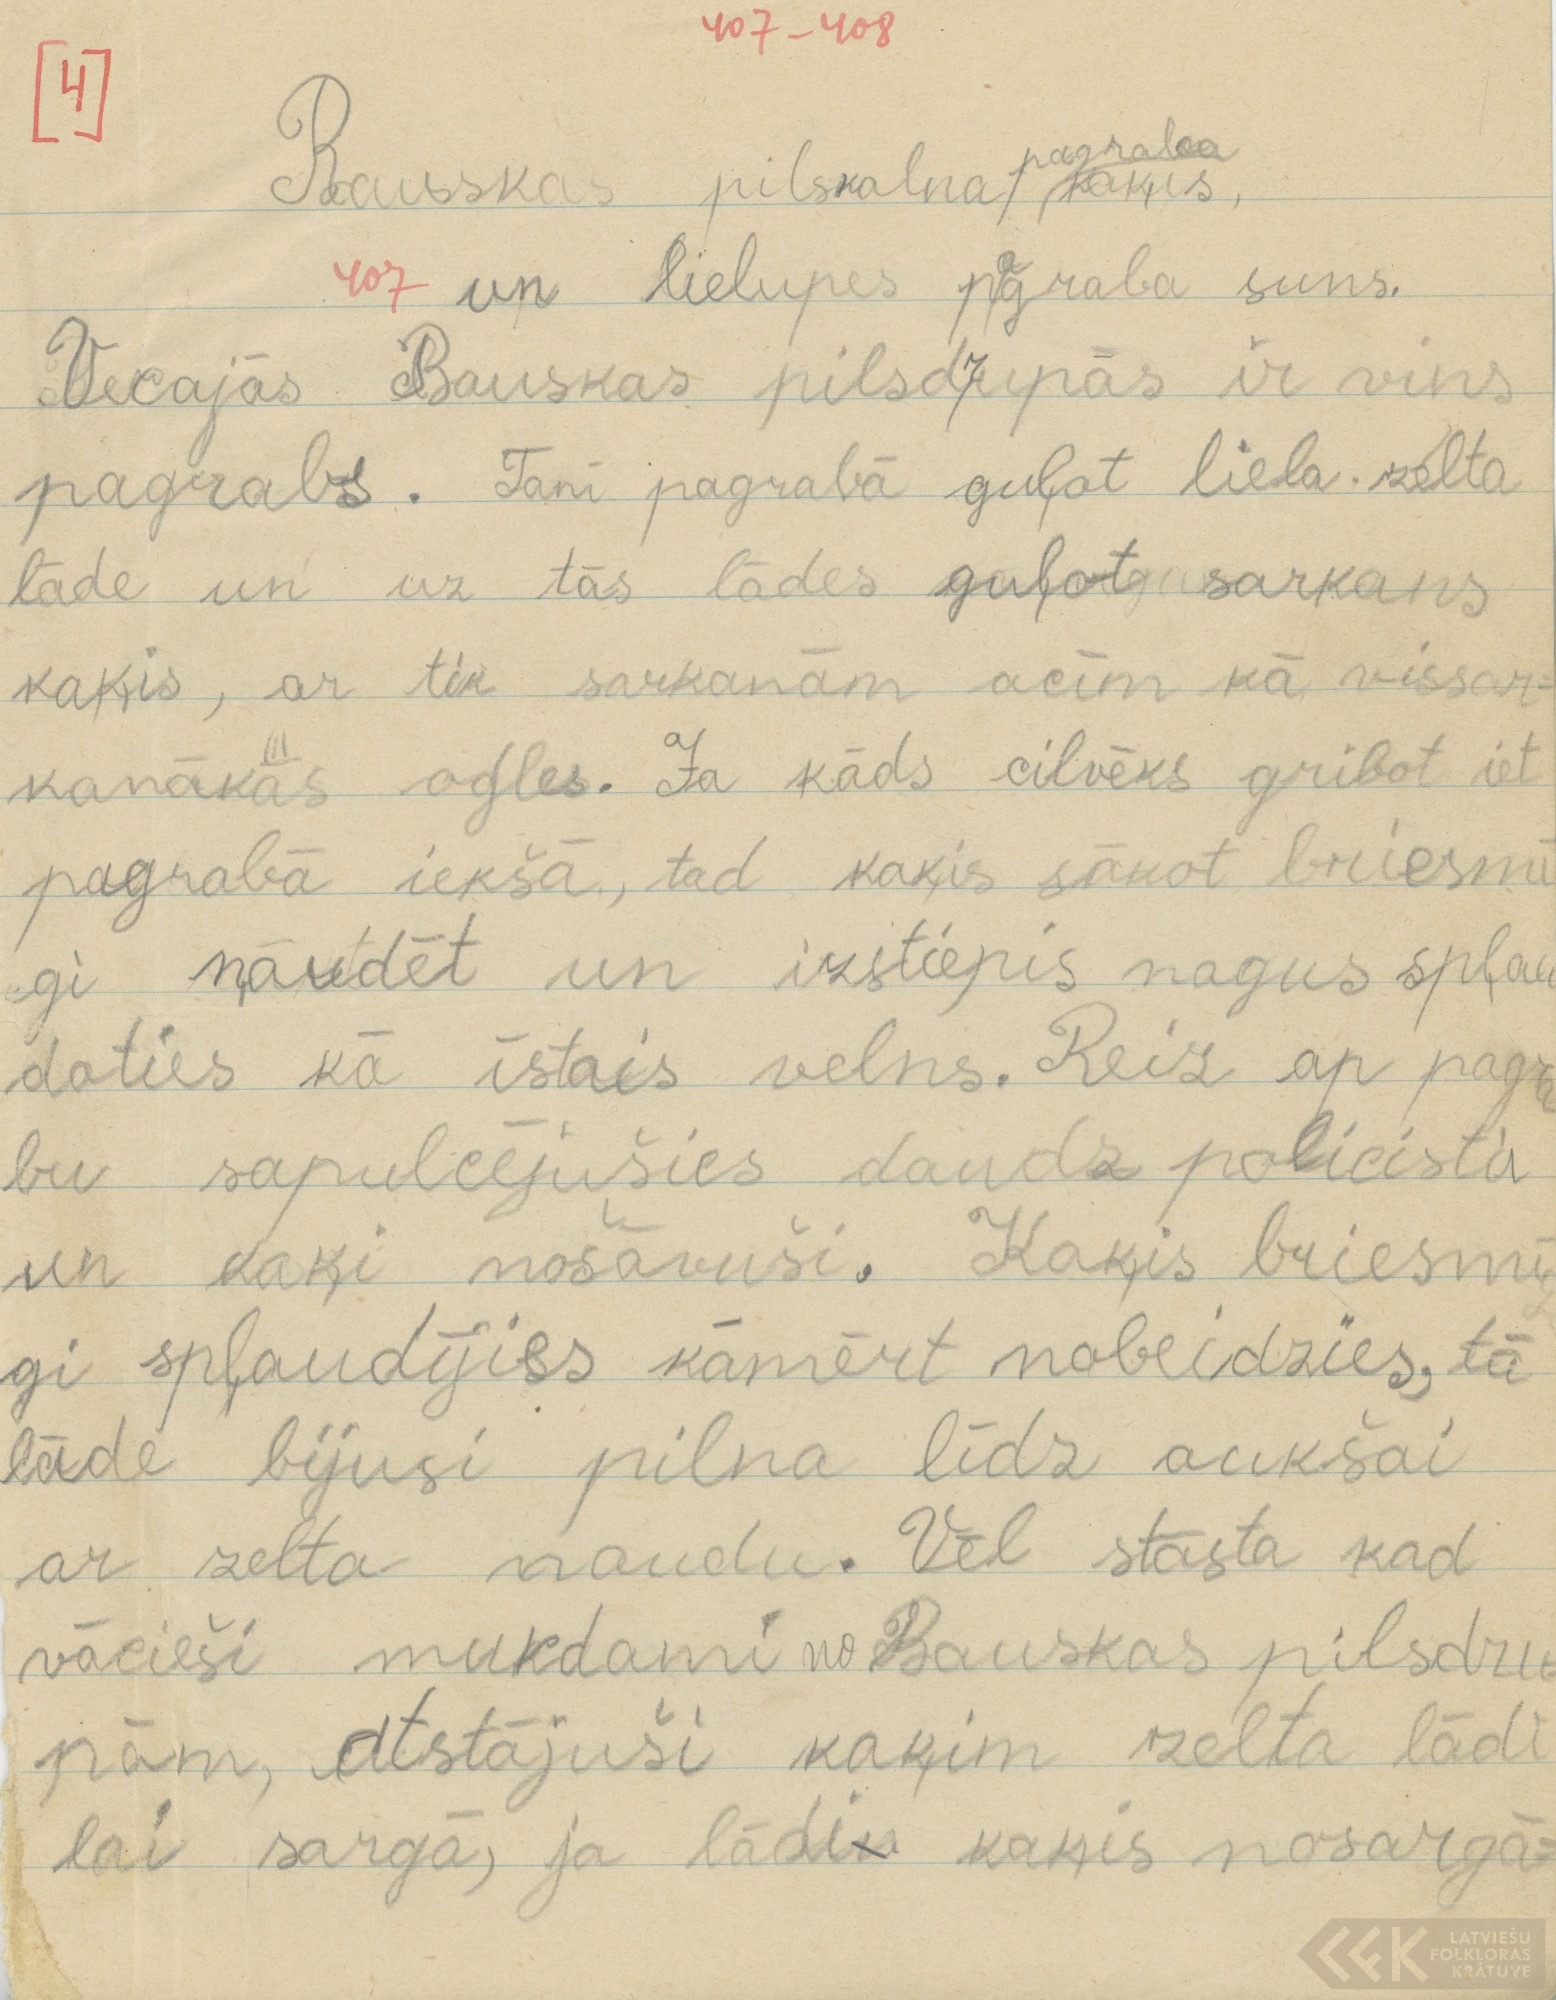 407-408
[4]
Bauskas pilskalna pagraba kaķis,
407 un lielupes pagraba suns.
Vecajās Bauskas pilsdrupās ir vins
pagrabs. Tanī pagrabā guļot liela zelta
lāde un uz tās lādes guļot sarkans
kaķis, ar tik sarkanām acīm kā vissar=
kanākās ogles. Ja kāds cilvēks gribot iet
pagrabā iekšā, tad kaķis sākot briesmī
gi ņaudēt un izstiepis nagus spļau
doties kā īstais velns. Reiz ap pagra
bu sapulcējušies daudz policista
un kaķi nošāvuši. Kaķis briesmī
gi spļaudījies kāmērt nobeidzies, tā
lāde bijusi pilna līdz aukšai
ar zelta naudu. Vēl stāsta kad
vācieši mukdami no Bauskas pilsdru
pām, atstājuši kaķim zelta lādi
lai sargā, ja lādi kaķis nosargā=
LATVIEŠU
FOLKLORAS
KRĀTUVE